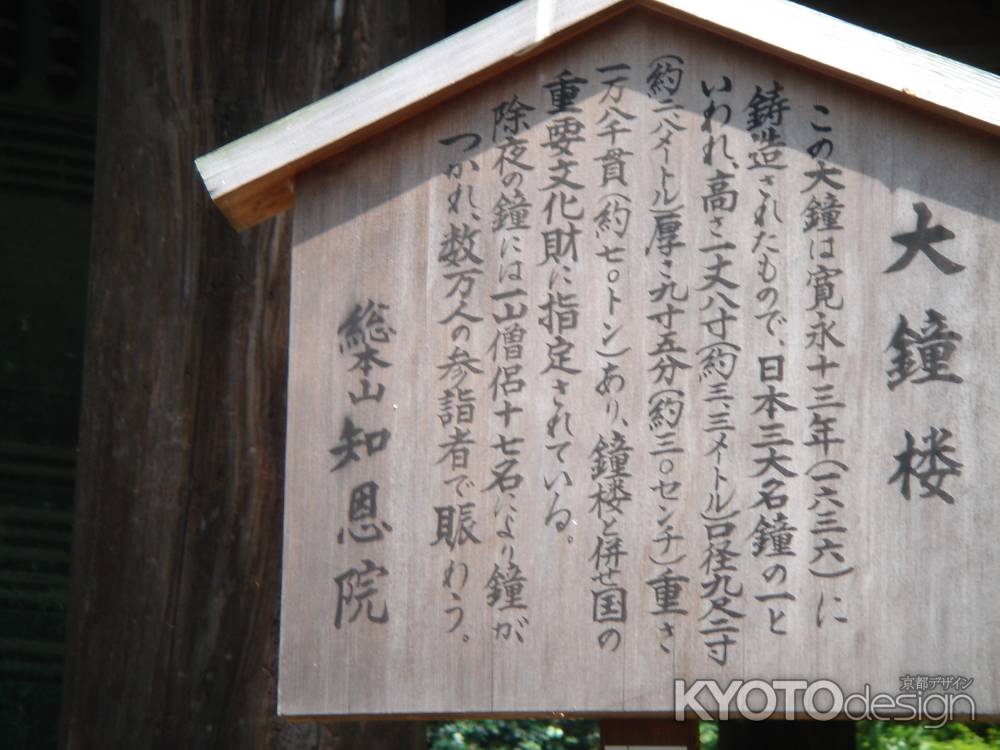 大鐘楼
この大鐘は寛永十三年(一六三六)に
鋳造されたもので、日本三大名鐘の一と
いわれ、高さ一丈八寸(約三.三メートル)口径九尺二寸
(約二.八メートル)厚さ九寸五分(約三〇センチ)重さ
一万八千貫(約七〇トン)あり、鐘楼と併せ国の
重要文化財に指定されている。
除夜の鐘には一山僧侶十七名により鐘が
つかれ、数万人の参詣者で賑わう。
総本山知恩院
KYOTOdesign
京都デザイン